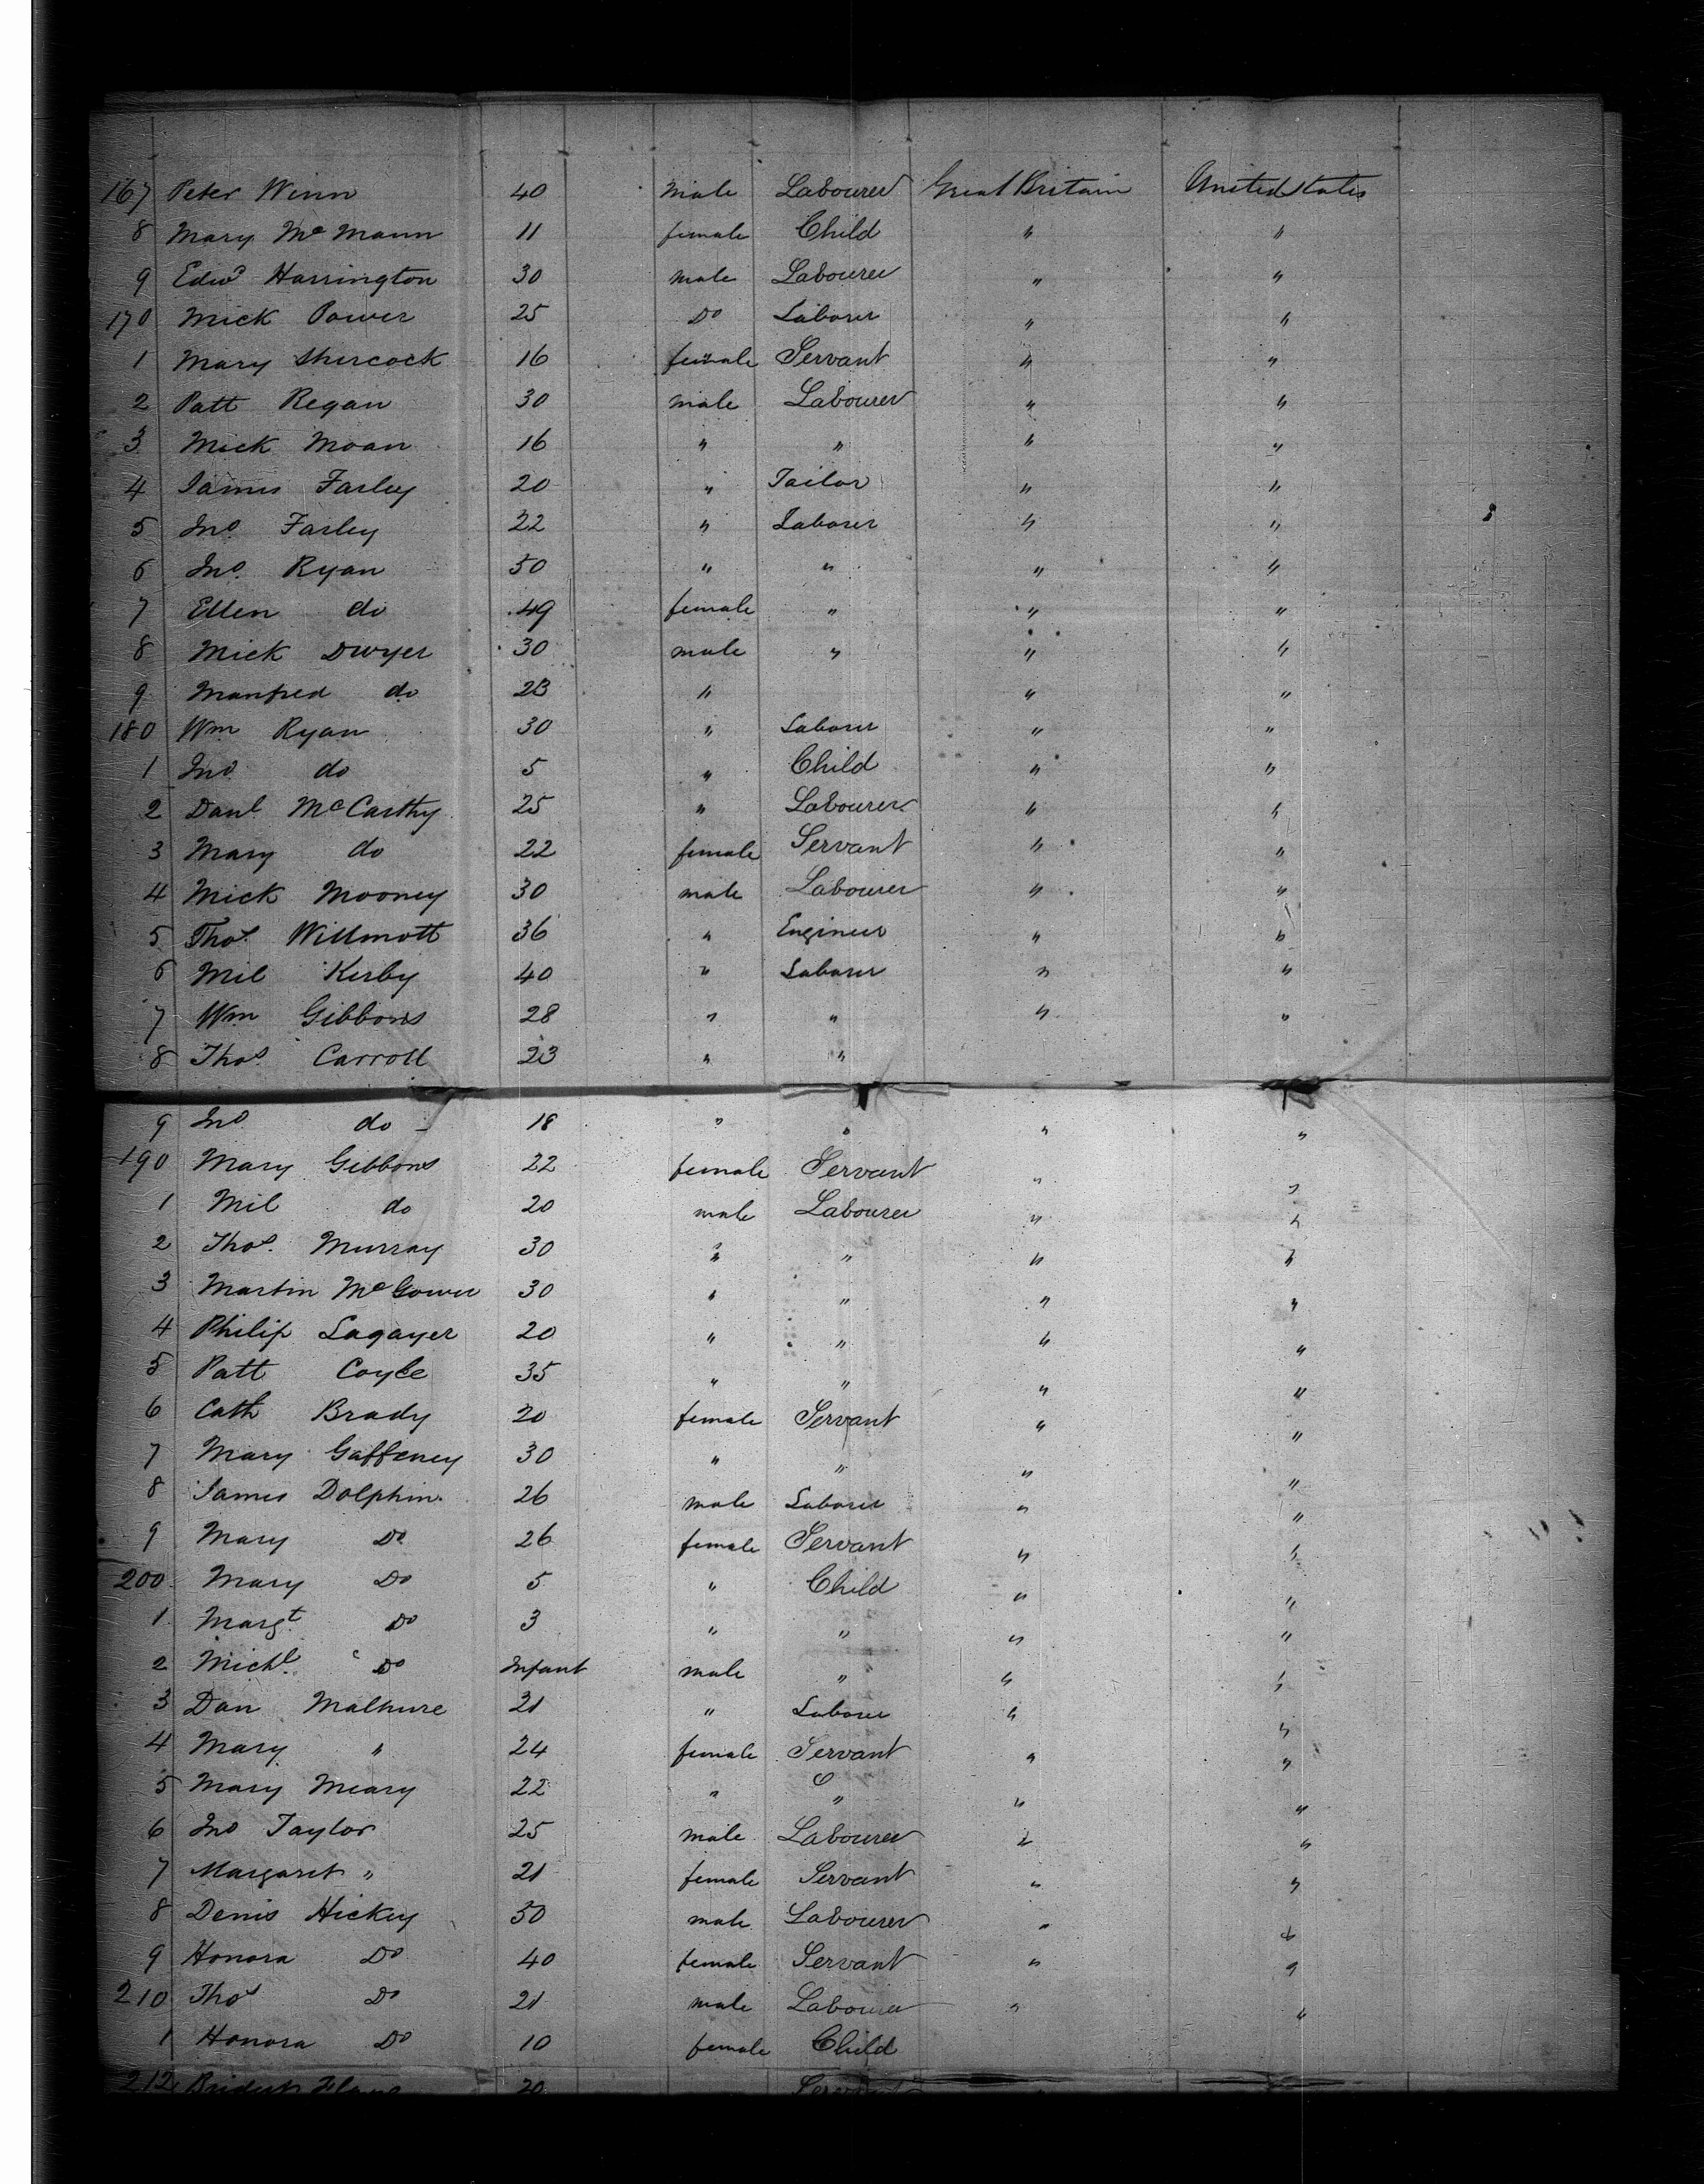 167 Peter Winn 40 Male Labourer Great Britain United States
8 Mary McMann 11 female Child " "
9 Edwd Harrington 30 male Labourer " "
170 Mick Power 25 Do Laborer " "
1 Mary Shercock 16 female Servant " "
2 Patt Regan 30 male Labourer " "
3 Mick Moan 16 " " " "
4 James Farley 20 " Tailor " "
5 Jno Farley 22 " Laborer " "
6 Jno. Ryan 50 " " " "
7 Ellen do 49 female " " "
8 Mick Dwyer 30 male " " "
9 Manfred do 23 " " "
180 Wm Ryan 30 " Laborer " "
1 Jno do 5 " Child " "
2 Danl McCarthy 25 " Labourer " "
3 Mary do 22 female Servant " "
4 Mick Mooney 30 male Labourer " "
5 Thos. Willmott 36 " Engineer " "
6 Mil Kerby 40 " Laborer " "
7 Wm Gibbons 28 " " " "
8 Thos. Carroll 23 " "
9 Jno do 18 " " " "
190 Mary Gibbons 22 female Servant " "
1 Mil do 20 male Labourer " "
2 Thos. Murray 30 " " " "
3 Martin McGower 30 " " " "
4 Philip Lagayer 20 " " " "
5 Patt Coyle 35 " " " "
6 Cath Brady 20 female Servant " "
7 Mary Gaffeney 30 " " " "
8 James Dolphin 26 male Laborer " "
9 Mary Do 26 female Servant " "
200 Mary Do 5 " Child " "
1 Margt. Do 3 " " " "
2 Michl. Do Infant male " " "
3 Dan Malhure 21 " Laborer " "
4 Mary " 24 female Servant " "
5 Mary Meary 22 " " " "
6 Jno Taylor 25 male Labourer " "
7 Margaret " 21 female Servant " "
8 Denis Hickey 50 male Labourer " "
9 Honora Do 40 female Servant " "
210 Thos Do 21 male Labourer " "
1 Honora Do 10 female Child
212 20 Servant